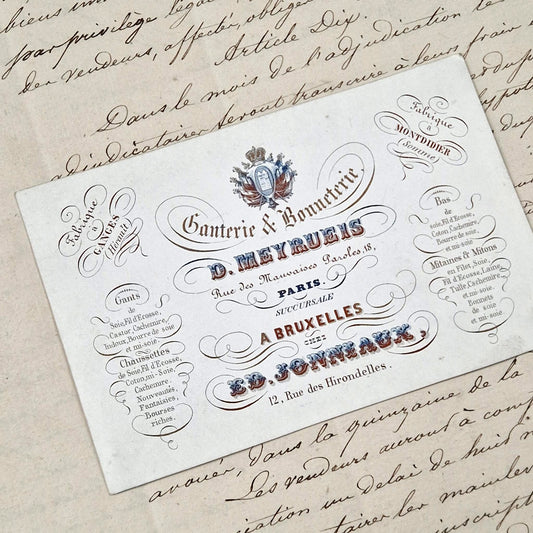 biens imm
par privilège légal
des vendeurs, affecter, oblige
Article Dix.
Dans le mois de l'adjudication le
adjudicataires feront transcrire à leurs frais
Fabrique
à
GANGES
(Hérault)
Gants
de
Soie, Fil d'Ecosse,
Castor, Cachemire,
Indoux, Bourre de soie
et mi-soie.
Chaussettes
de Soie, Fil d'Ecosse,
Coton, mi-Soie,
Cachemire,
Nouveautés,
Fantaisies,
Bourses
riches.
Ganterie & Bonneterie
D. MEYRUEIS
Rue des Mauvaises Paroles 18,
PARIS.
SUCCURSALE
A BRUXELLES
CHEZ
ED. JONNIAUX,
12, Rue des Hirondelles.
Fabrique
à
MONTDIDIER
(Somme)
Bas
de
soie, Fil d'Ecosse,
Coton, Cachemire,
Bourre de soie
et mi-soie
Mitaines & Mitons
en Filet, Soie,
Fil d'Ecosse, Laine,
Tulle, Cachemire,
et mi-soie.
Bonnets
de soie
et mi-soie.
avouer, dans la quinzaine de la
Les vendeurs auront à comp
un délai de huit
inscript